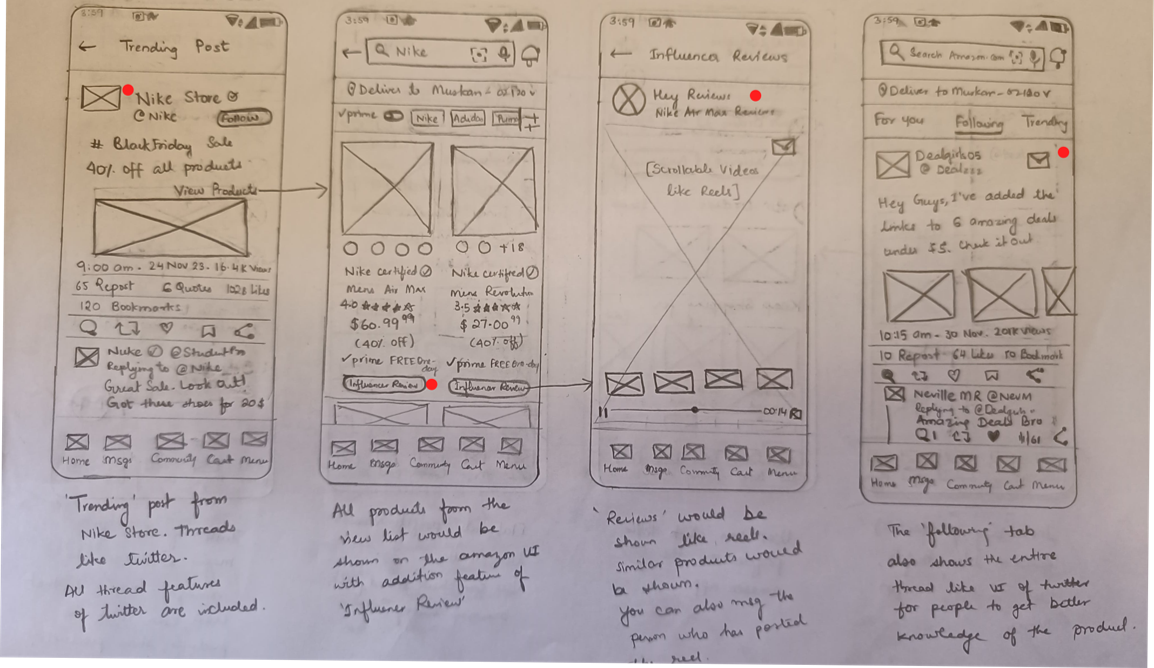 3:59
← Trending Post
Nike Store
@Nike
Follow
# BlackFriday Sale
40% off all products
View Products
9:00 am - 24 Nov 23 - 16.4K Views
65 Repost 6 Quotes Likes
120 Bookmarks
Nuke @StudutPro
Replying to @Nike
Great Sale. Look out!
Got these shoes for 20$
Home Msgs Community Cart Menu
'Trending' post from
Nike Store. Threads
like twitter.
All thread features
of twitter are included.
3:59
← Nike
Deliver to Muskan - 02120
✓prime Nike Adidas Puma
+18
Nike certified Nike certified
Mens Air Max Mens Revolution
4.0 ★★★★★ 3.5 ★★★★★
$60.99 99 $27.00 99
(40% off) (40% off)
✓prime FREE One-day ✓prime FREE One-day
Influencer Review Influencer Review
Home Msgs Community Cart Menu
All products from the
view list would be
shown on the amazon UI
with addition feature of
'Influncer Review'
3:59
← Influencer Reviews
Hey Reviews
Nike Air Max Reviews
[Scrollable Videos
like Reels]
00:14
Home Msgs Community Cart Menu
'Reviews' would be
shown like reels.
similar products would
be shown.
You can also msg the
person who has posted
the reel.
3:59
Search Amazon.com
Deliver to Muskan - 02120
For you Following Trending
Dealgirls05
@Dealss
Hey Guys, I've added the
links to 6 amazing deals
under $5. Check it out
10:15 am - 30 Nov. 201K Views
10 Repost 64 Likes 10 Bookmark
Neville MR @NevM
Replying to @Dealgirls
Amazing Deals Bro
Home Msgs Community Cart Menu
The 'following' tab
also shows the entire
thread like UI of twitter
for people to get better
knowledge of the product.